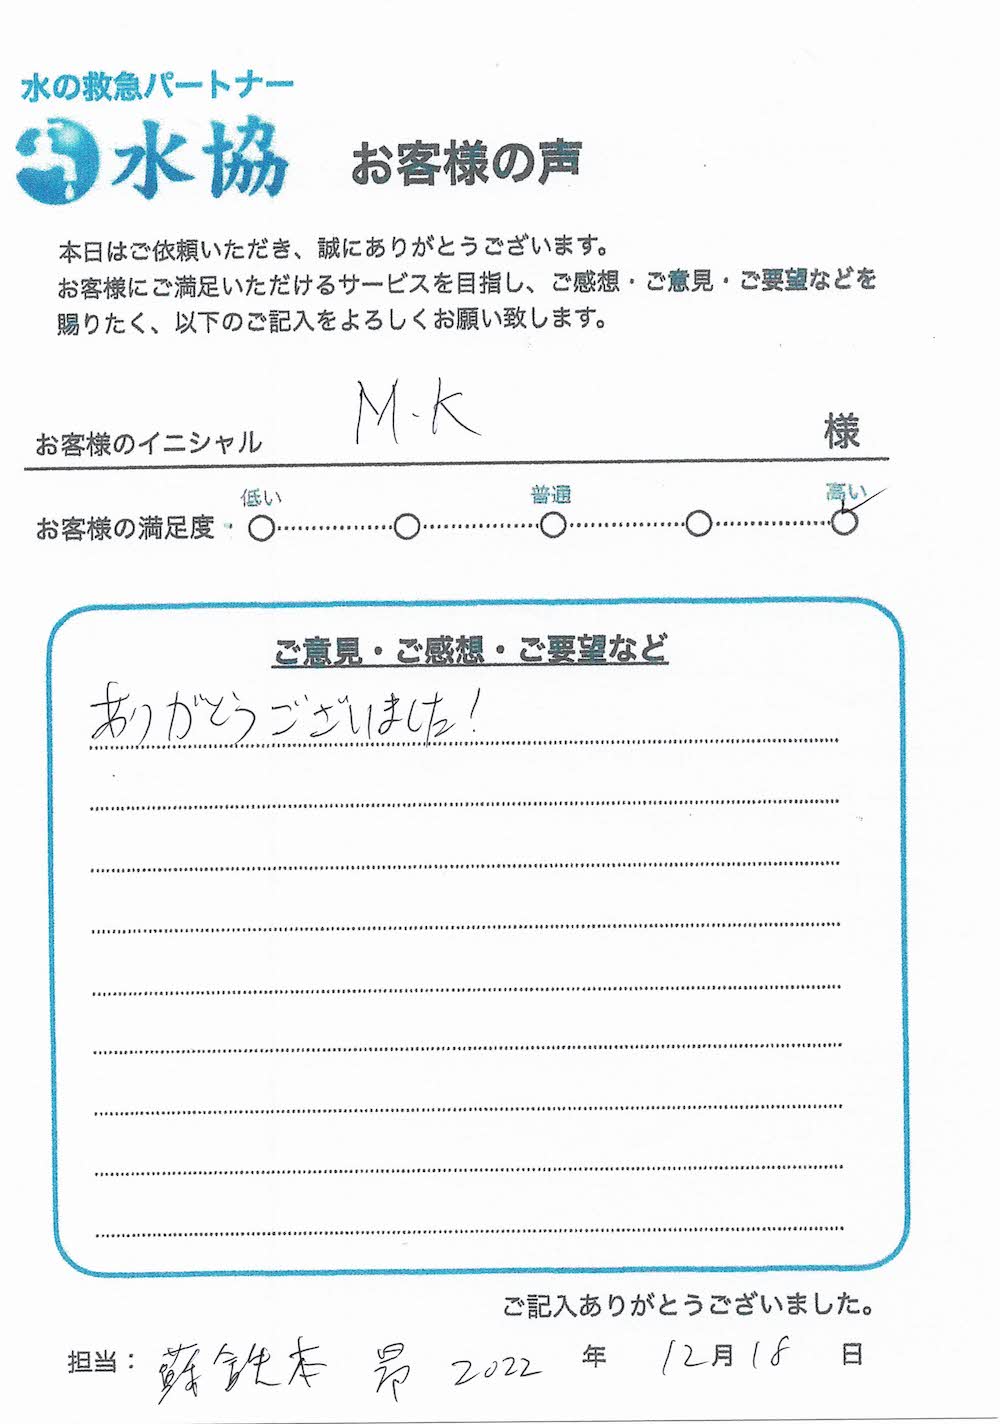 水の救急パートナー
水協
お客様の声
本日はご依頼いただき、誠にありがとうございます。
お客様にご満足いただけるサービスを目指し、ご感想・ご意見・ご要望などを
賜りたく、以下のご記入をよろしくお願い致します。
お客様のイニシャル M.K 様
低い 普通 高い
お客様の満足度
ご意見・ご感想・ご要望など
ありがとうございました!
ご記入ありがとうございました。
担当: 蘇鉄本 昴 2022 年 12月18 日